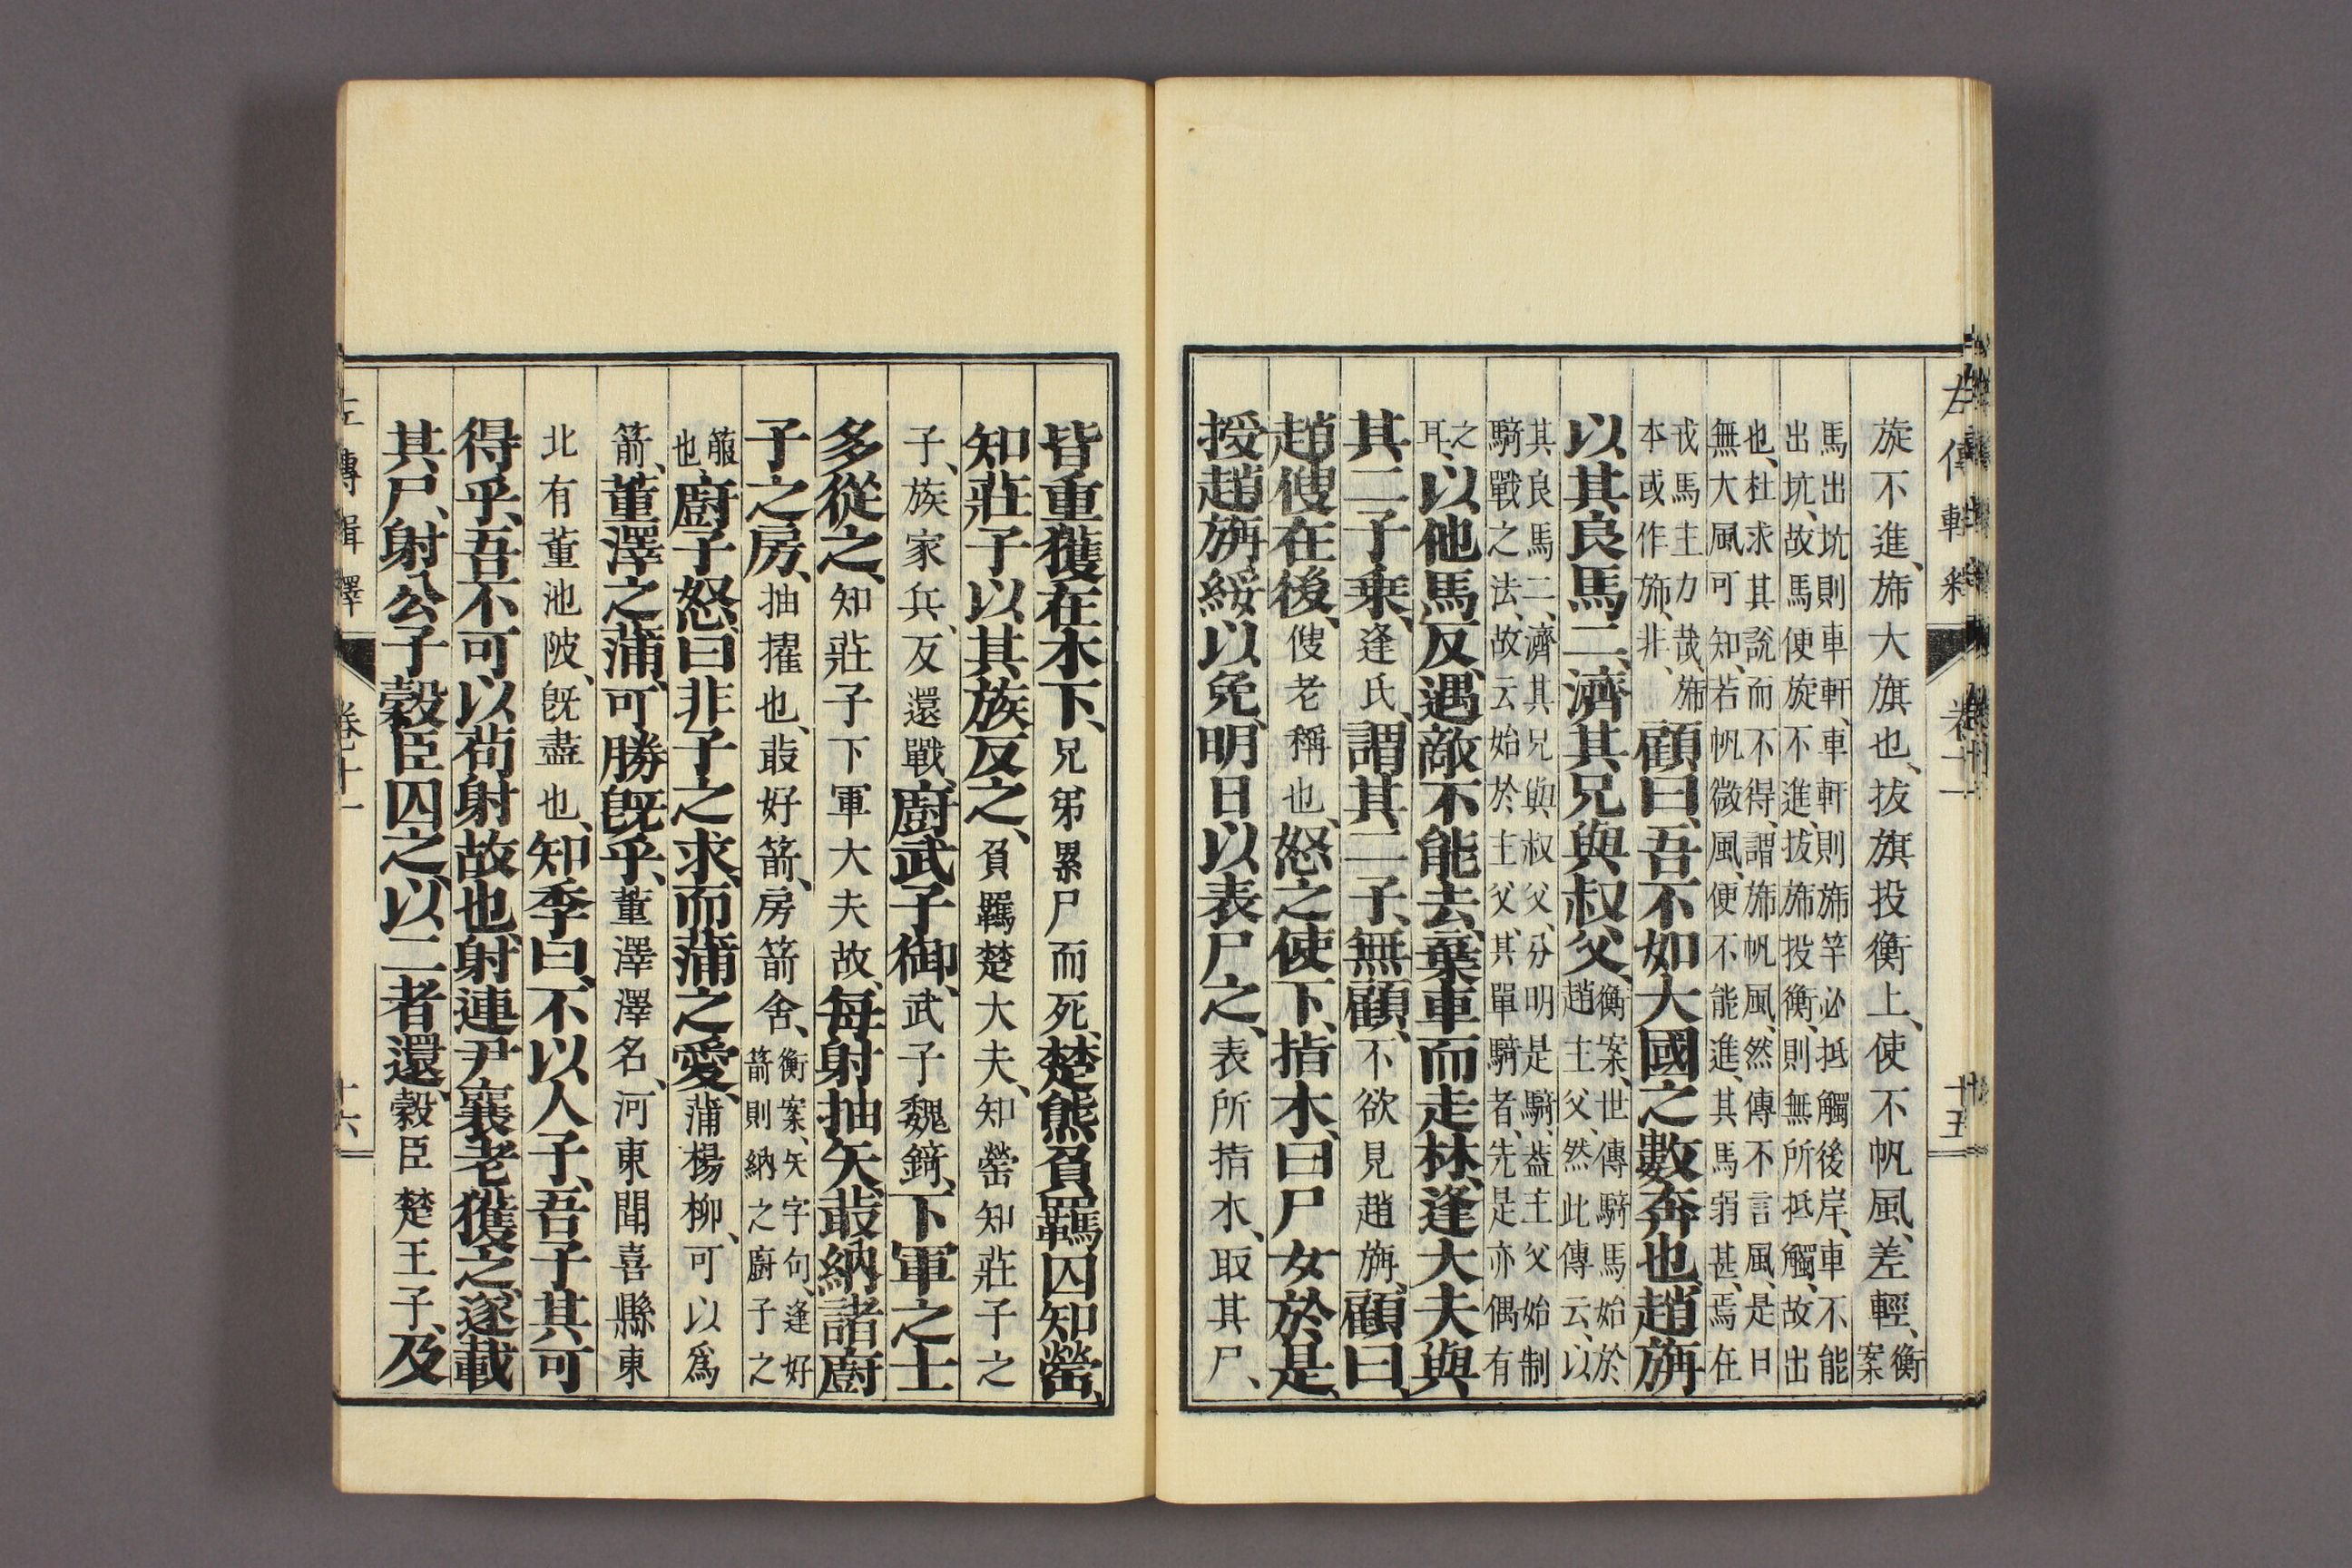 旋不進、旆大旗也、拔旗投衡上、使不帆風、差輕、衡
案
馬出坑則車軒、車軒則旆竿必抵觸後岸、車不能
出坑、故馬便旋不進、拔旆投衡、則無所抵觸、故出
也、杜求其說而不得、謂旆帆風、然傳不言風、是日
無大風可知、若帆微風、便不能進、其馬弱甚、焉在
戎馬主力哉、旆
本或作旆、非、
顧曰、吾不如大國之數奔也、趙旃
以其良馬二、濟其兄與叔父、
衡案、世傳騎馬始於
趙主父、然此傳云、以
其良馬二、濟其兄與叔父、分明是騎、蓋主父始制
騎戰之法、故云始於主父、其單騎者、先是亦偶有
之
耳、
以他馬反、遇敵不能去、棄車而走林、逢大夫與
其二子乘、逢氏、謂其二子、無顧、不欲見趙旃、顧曰、
趙傁在後、傁老稱也、怒之使下、指木、曰尸女於是、
授趙旃綏以免、明日以表尸之、表所指木、取其尸、
皆重獲在木下、兄弟累尸而死、楚熊負羈囚知罃、
知莊子以其族反之、負羈楚大夫、知罃知莊子之
子、族家兵、反還戰、廚武子御、武子魏錡、下軍之士
多從之、知莊子下軍大夫故、每射抽矢菆納諸廚
子之房、抽擢也、菆好箭、房箭舍、
衡案、矢字句、逢好
箭則納之廚子之
箙
也
廚子怒、曰非子之求、而蒲之愛、蒲楊柳、可以爲
箭、董澤之蒲、可勝旣乎、董澤澤名、河東聞喜縣東
北有董池陂、旣盡也、知季曰、不以人子、吾子其可
得乎、吾不可以苟射故也、射連尹襄老獲之、遂載
其尸、射公子穀臣囚之、以二者還、穀臣楚王子、及
左傳輯釋 卷十一 十六